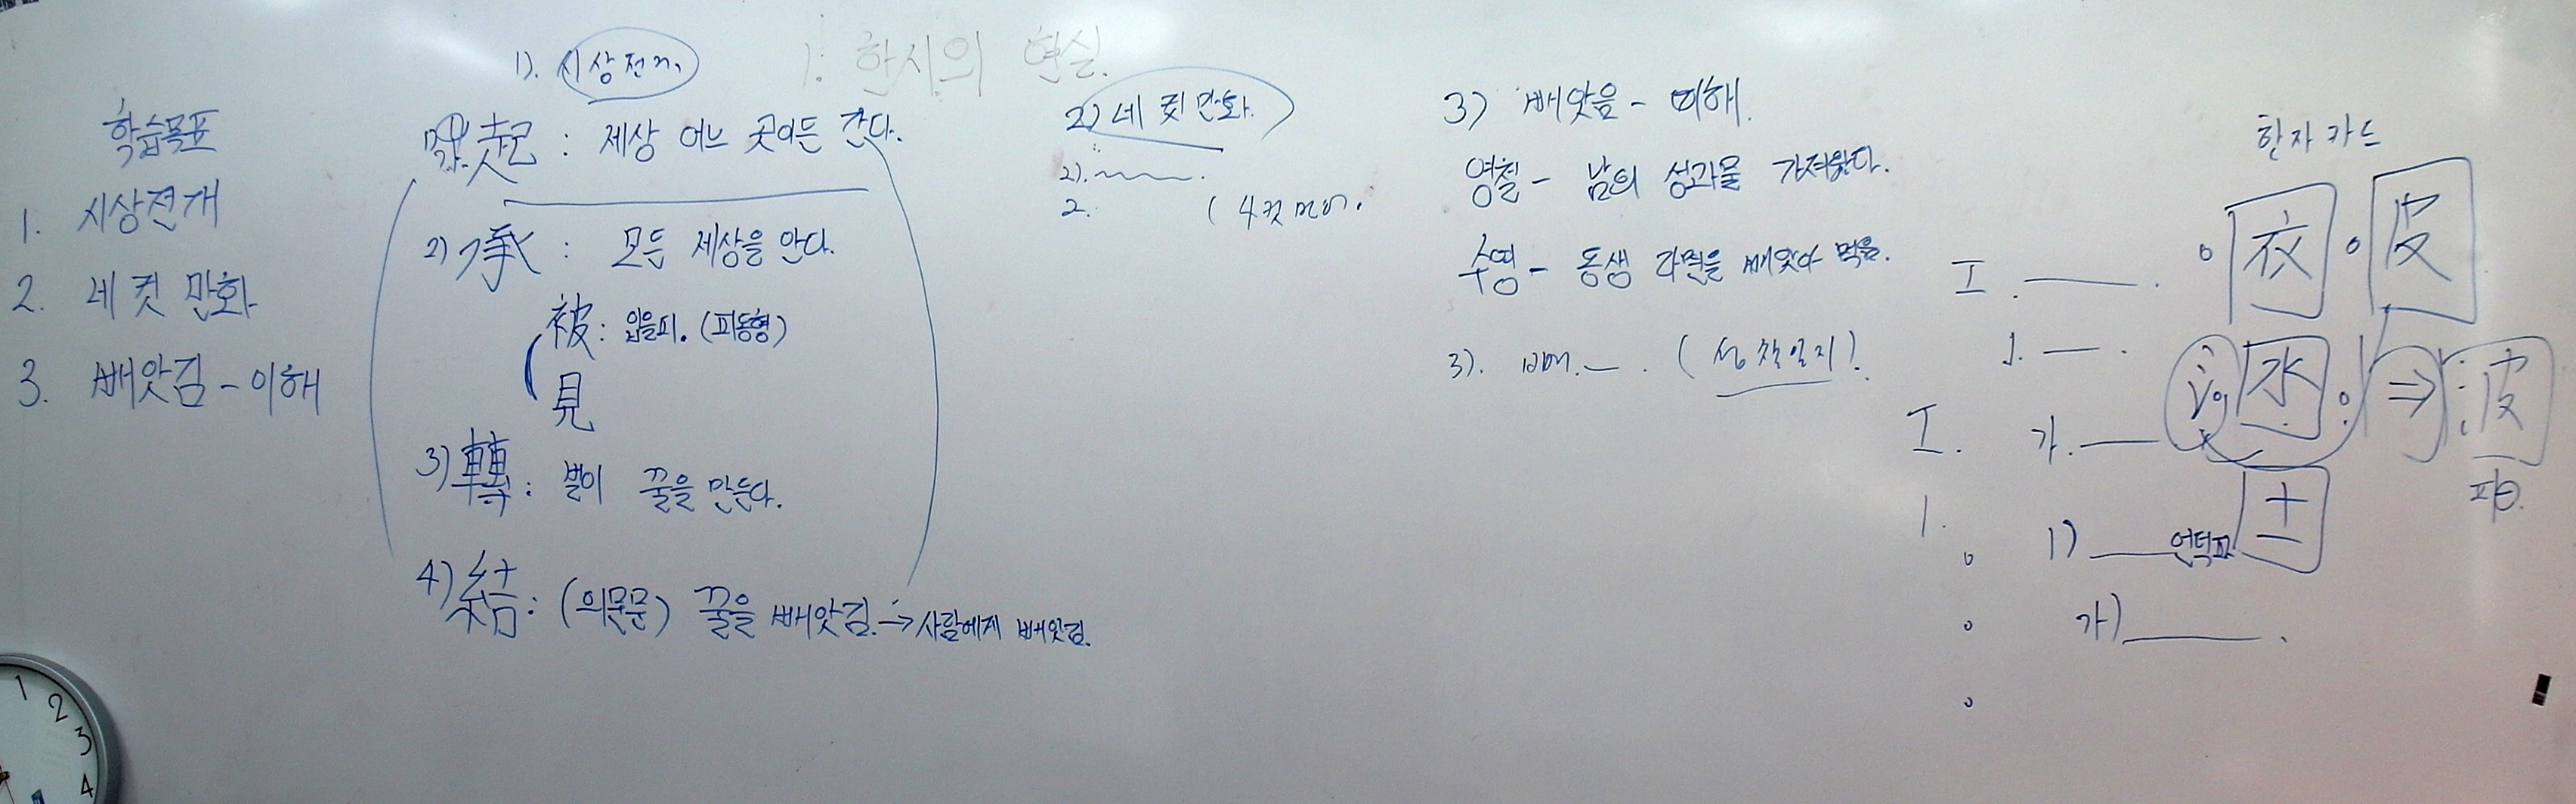 학습목표
1. 시상전개
2. 네 컷 만화
3. 빼앗김 - 이해
1. 한시의 현실.
1). 시상전개
起 : 세상 어느 곳이든 간다.
2) 承 : 모든 세상을 안다.
被 : 입을피. (피동형)
見
3) 轉 : 벌이 꿀을 만든다.
4) 結 : (의문문) 꿀을 빼앗김. → 사람에게 빼앗김.
2) 네 컷 만화.
2).
2. (4컷
3) 빼앗음 - 이해.
영철 - 남의 성과물 가져왔다.
수영 - 동생 라면을 빼앗아 먹음.
3). 빼 (성찰일지)
I.
1.
I. 가.
1.
1)
가)
한자 카드
衣 皮
氵 水 ⇒ 波
파
언덕파 土